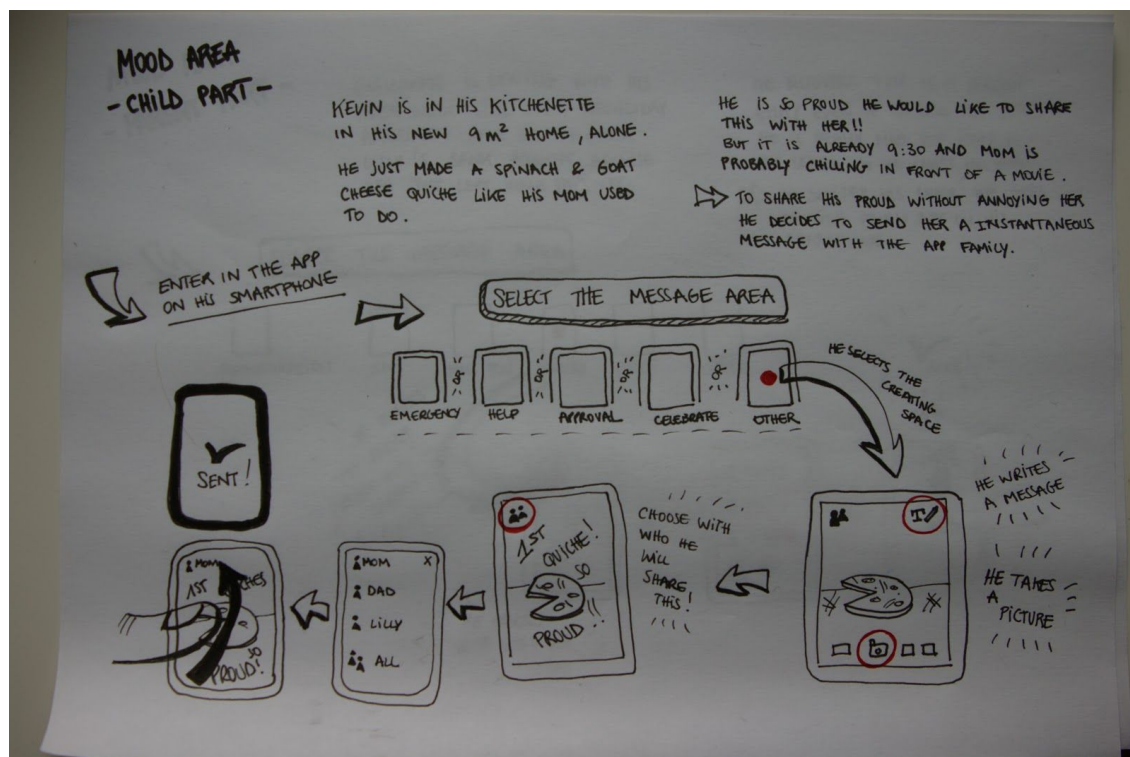 MOOD AREA
- CHILD PART -
KEVIN IS IN HIS KITCHENETTE
IN HIS NEW 9m² HOME, ALONE.
HE JUST MADE A SPINACH & GOAT
CHEESE QUICHE LIKE HIS MOM USED
TO DO.
HE IS SO PROUD HE WOULD LIKE TO SHARE
THIS WITH HER!!
BUT IT IS ALREADY 9:30 AND MOM IS
PROBABLY CHILLING IN FRONT OF A MOVIE.
TO SHARE HIS PROUD WITHOUT ANNOYING HER
HE DECIDES TO SEND HER A INSTANTANEOUS
MESSAGE WITH THE APP FAMILY.
ENTER IN THE APP
ON HIS SMARTPHONE
SELECT THE MESSAGE AREA
OR OR OR OR
EMERGENCY HELP APPROVAL CELEBRATE OTHER
HE SELECTS THE
CREATING
SPACE
T
HE WRITES
A MESSAGE
HE TAKES
A
PICTURE
CHOOSE WITH
WHO HE
WILL
SHARE
THIS!
1ST
QUICHE!
SO
PROUD!!
MOM X
DAD
LILLY
ALL
MOM
1ST
SO
PROUD!
SENT!